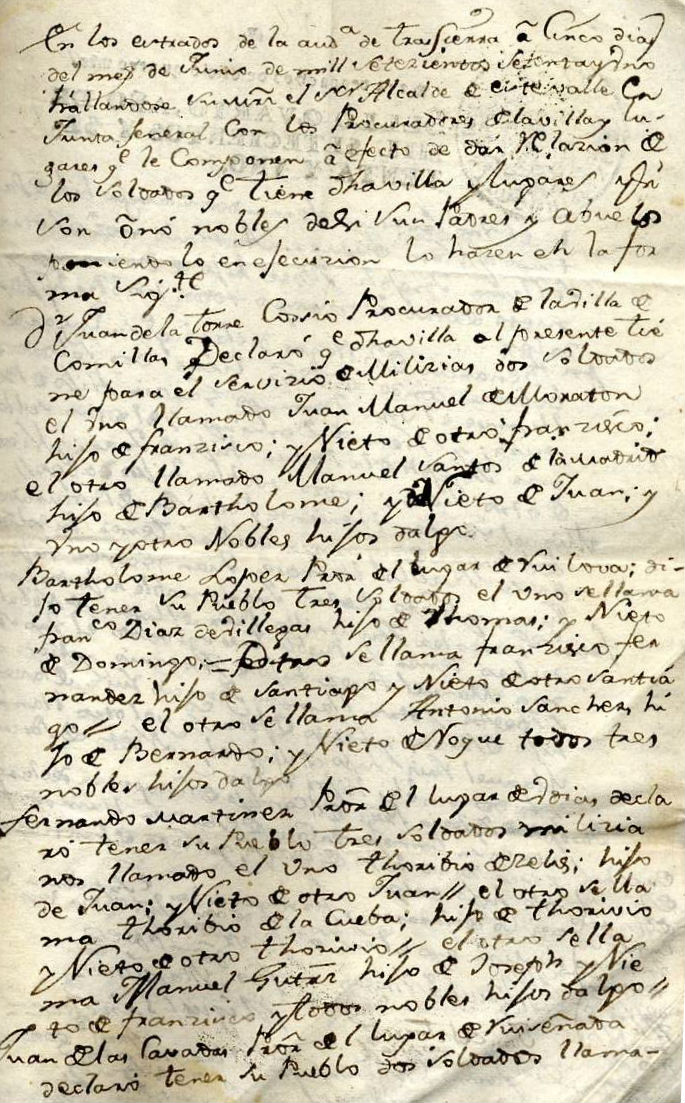 En los estrados de la aud.ª de trasSierra â Cinco dias
del mes de Junio de mill setezientos setenta y Uno
hâllandose su mrd el S.r Alcalde de este valle En
Junta General Con los Procuradores de la villa y lu-
gares q.e le Componen â efecto de dar Relazion de
los soldados q.e tiene dha villa y lugares y si
son ô nó nobles de sus Padres y Abuelos
poniendolo en efecuzion lo hazen en la for
ma sig.te
D.n Juan de la torre Cossio Procurador de la Villa de
Comillas Declaró q.e dha villa al presente tie
ne para el servizio de Milizias dos soldados
el Vno llamado Juan Manuel de Moraton
hijo de franzisco; y Nieto de otro franzisco;
el otro llamado Manuel Santos de la Madrid
hijo de Bartholome; y Nieto de Juan; y
Uno y otro Nobles hijos dalgo
Bartholome Lopez Pror de el lugar de Ruilova; di-
jo tener su Pueblo tres soldados el Uno se llama
fran.co Diaz de Villegas hijo de Thomas; y Nieto
de Domingo; = otro se llama franzisco fer
nandez hijo de Santiago y Nieto de otro Santiâ
go // el otro se llama Antonio Sanchez hi
jo de Bernardo; y Nieto de Roque todos tres
nobles hijos dalgo
fernando Martinez Pror de el lugar de Vdias decla
ró tener su Pueblo tres soldados milizia
nos llamado el Uno thoribio de Zelis; hijo
de Juan; y Nieto de otro Juan // el otro se lla
ma thoribio de la Cueba; hijo de thorivio
y Nieto de otro thorivio // el otro se lla
ma Manuel Gutrrz hijo de Joseph y Nie
to de franzisco y todos nobles hijos dalgo //
Juan de las Cavadas Pror de el lugar de Ruiseñada
declaró tener su Pueblo dos soldados llama-